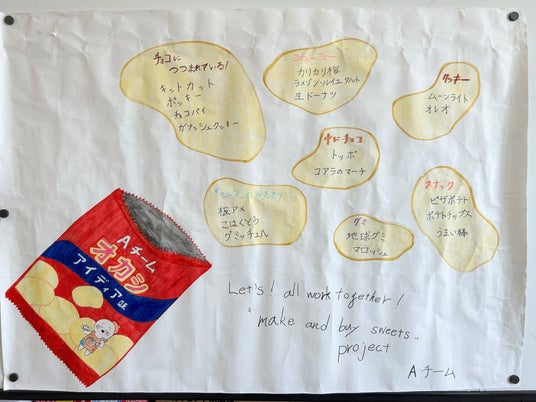 チョコに
つつまれている!
キットカット
ポッキー
チョコパイ
ガナッシュクッキー
カリカリ梅
生ドーナツ
クッキー
ムーンライト
オレオ
中にチョコ
トッポ
コアラのマーチ
板アメ
こはくとう
グミッチェル
グミ
地球グミ
マロッシュ
スナック
ピザポテト
ポテトチップス
うまい棒
Aチーム
オカシ
アイディア味
Let's! all work together!
"make and buy sweets"
project
Aチーム